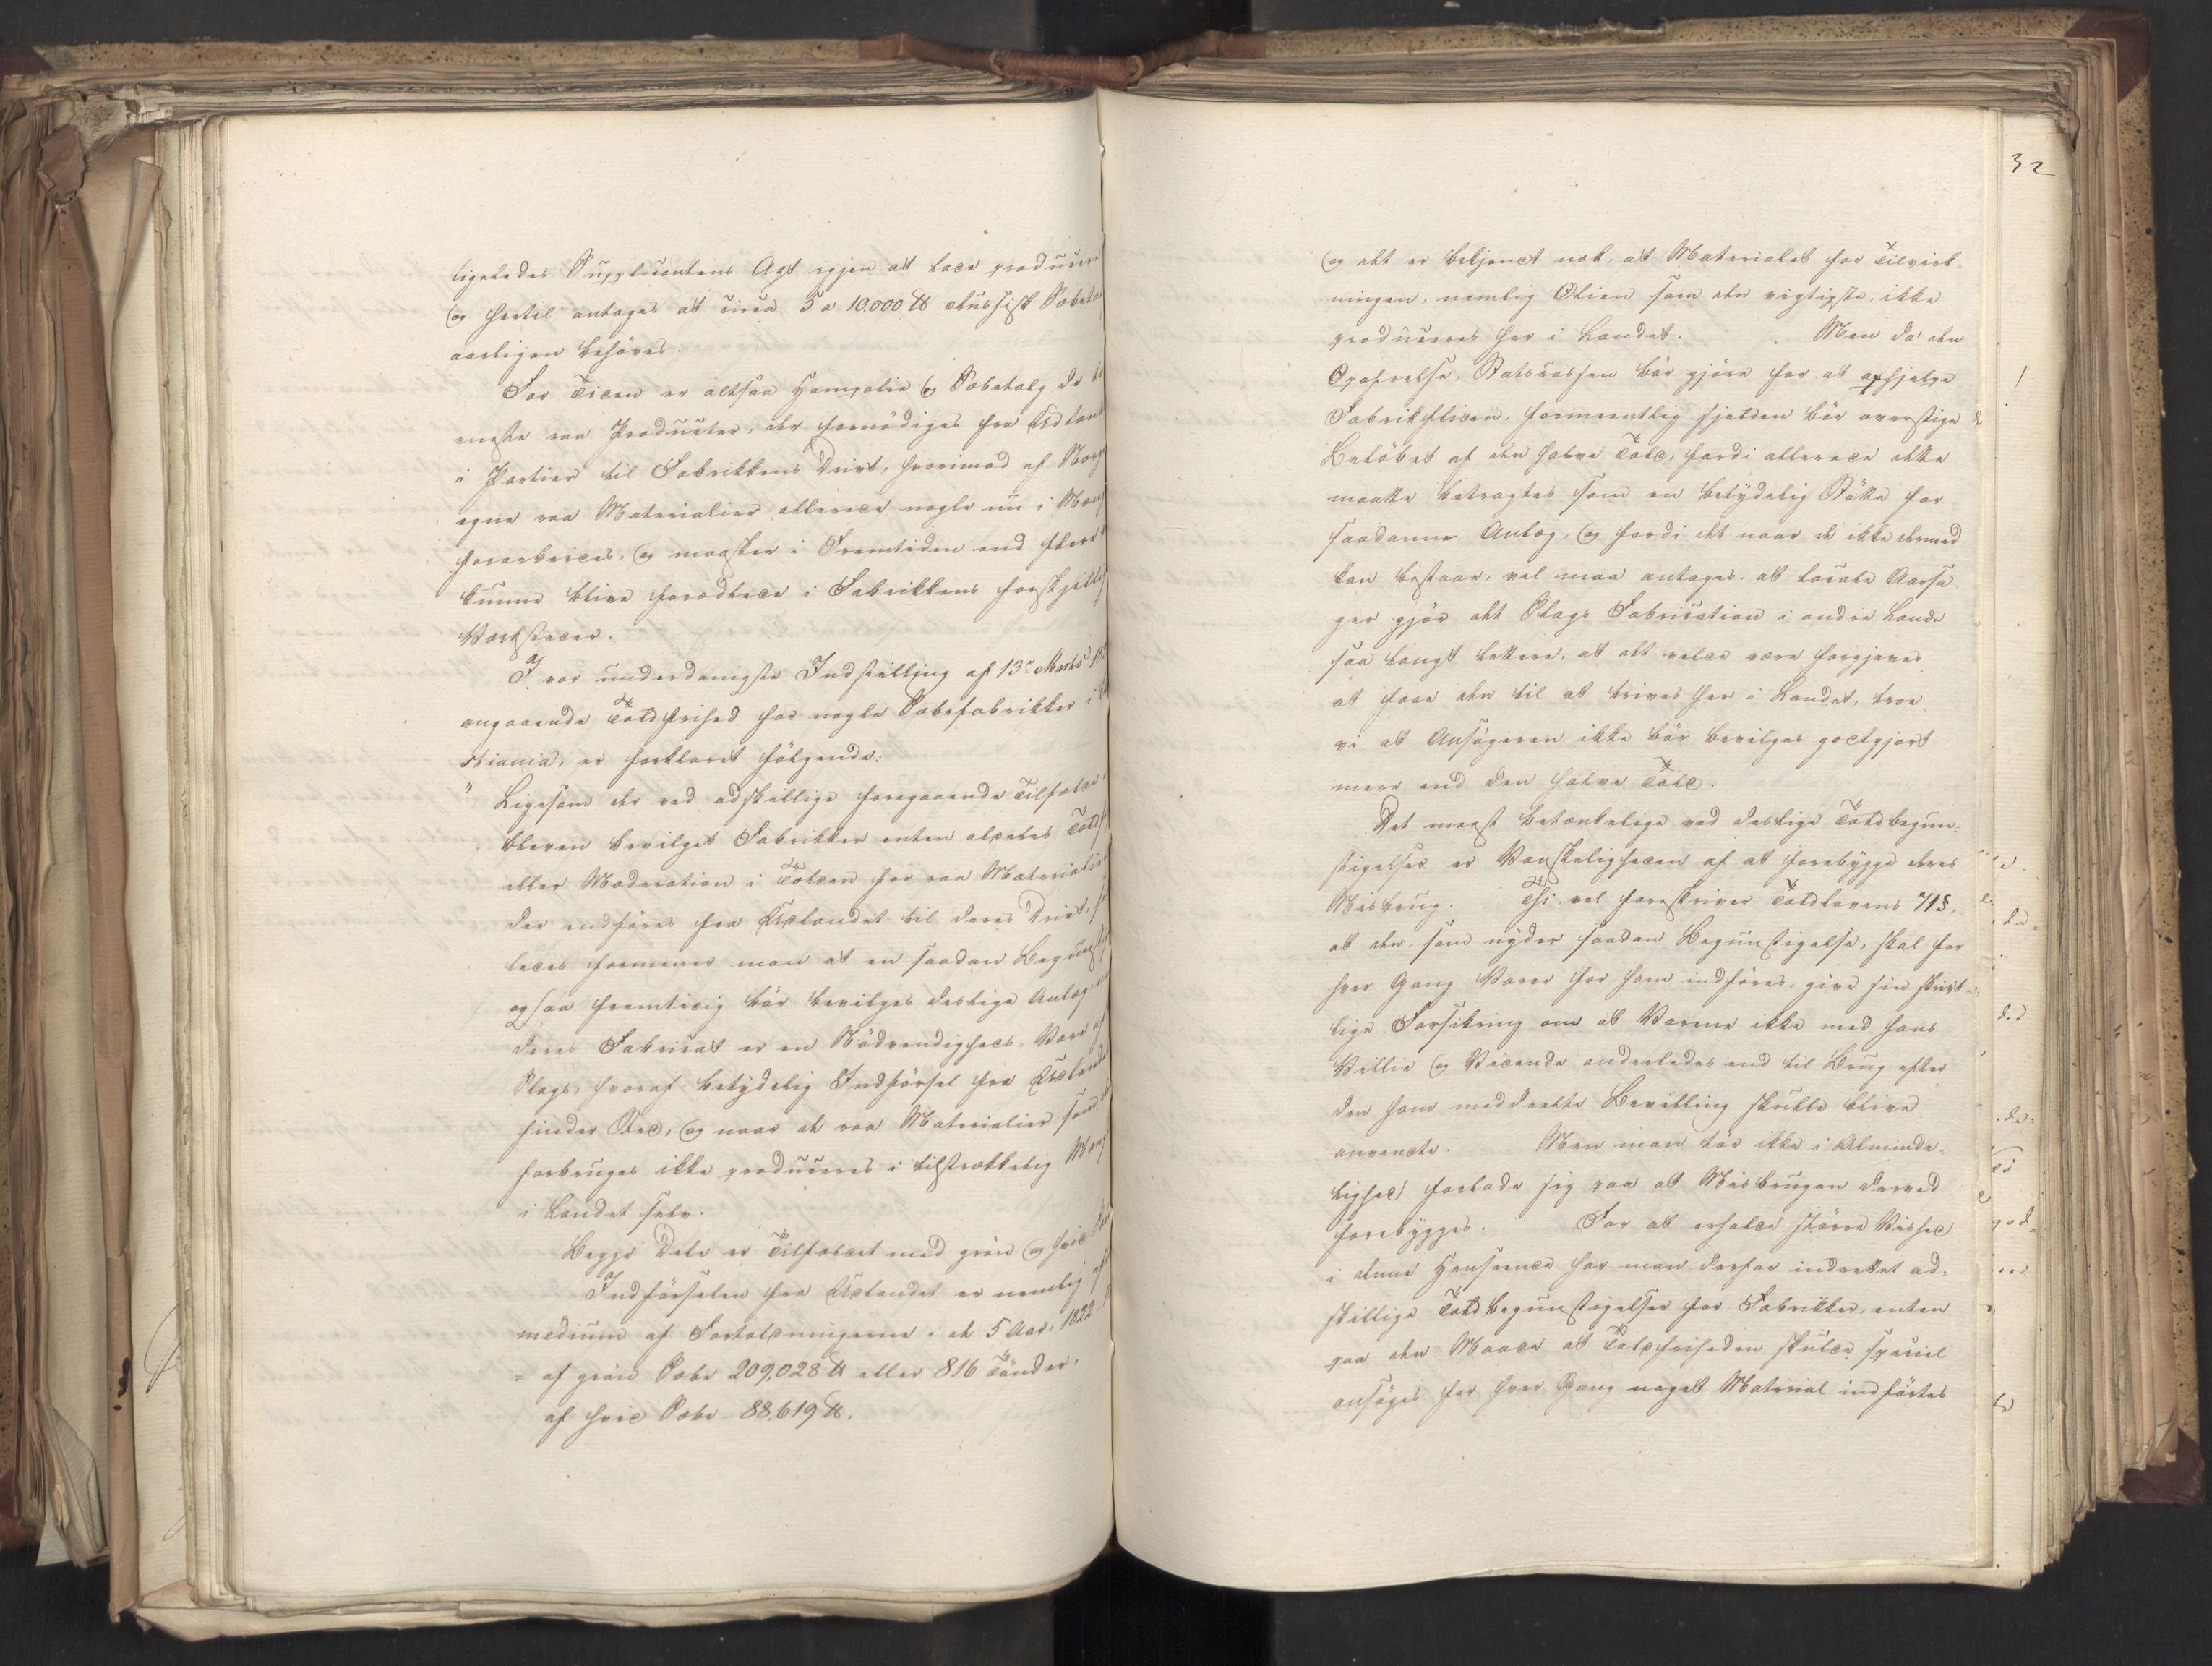 ligeledes Supplicantens Agt igjen at lade producere
og hertil antages at circa 5 a 10.000 ℔ Russisk Sæbeta
aarligen behöves.
For Tiden er altsaa Hampolie og Sæbetalg de to
eneste raa Producter, der fornödiges fra Udland
i Partier til Fabrikkens Drivt, hvorimod af Norg
egne raa Materialier allerede nogle nu i Mæng
forarbeides, og maaskee i Fremtiden end flere
kunne blive forædlede i Fabrikkens forskjellig
Værksteder.
I vor underdanigste Indstilling af 13de Marts 182
angaaende Toldfrihed for nogle Sæbefabrikker i
stiania, er forklaret fölgende:
" Ligesom der ved adskillige foregaaende Tilfælde
bleven bevilget Fabrikker enten aldeles Toldfr
eller Moderation i Tolden for raa Materialier
der indföres fra Udlandet til deres Drivt,
ledes formener man at en saadan Begunsti
ogsaa fremtidig bör bevilges deslige Anlæg,
deres Fabricat er en Nödvendigheds-Vare af
Slags, hvoraf betydelig Indförsel fra Udlande
finder Sted, og naar de raa Materialier som
forbruges ikke produceres i tilstrækkelig Mæng
i Landet selv.
Begge Dele er Tilfældet med grön og hvid Sæ
Indförselen fra Udlandet er nemlig eft
medium af Fortoldningerne i de 5 Aar, 1822
= af grön Sæbe 209,028 ℔ eller 816 Tönder,
af hvid Sæbe - 88,619 ℔.
32
og det er bekjendt nok, at Materialet for Tilvirk-
ningen, nemlig Olien som den vigtigste, ikke
produceres her i Landet. Men da den
Opofrelse, Statscassen bör gjöre for at ophjelpe
Fabrikfliden, formeentlig sjelden bör overstige
Belöbet af den halve Told, fordi allerede dette
maatte betragtes som en betydelig Stötte for
saadanne Anlæg, og fordi det naar de ikke dermed
kan bestaae, vel maa antages, at locale Aarsa-
ger gjör det Slags Fabrication i andre Lande
saa langt lettere, at det vilde være forgjeves
at faae den til at trives her i Landet, troe
vi at Ansögeren ikke bör bevilges godtgjort
mere end den halve Told.
Det meest betænkelige ved deslige Toldbegun-
stigelser er Vanskeligheden af at forebygge deres
Misbrug. Thi vel foreskriver Toldlovens 71 §,
at den, som nyder saadan Begunstigelse, skal for
hver Gang Varer for ham indföres, give sin skrivt-
lige Forsikring om at Varerne ikke med hans
Villie og Vidende anderledes end til Brug efter
den ham meddeelte Bevilling skulle blive
anvendte. Men man tör ikke i Alminde-
lighed forlade sig paa at Misbrugen derved
forebygges. For at erholde större Vished
i denne Henseende har man derfor indrettet ad-
skillige Toldbegunstigelser for Fabrikker, enten
paa den Maade at Toldfriheden skulde speciel
ansöges for hver Gang noget Material indförtes